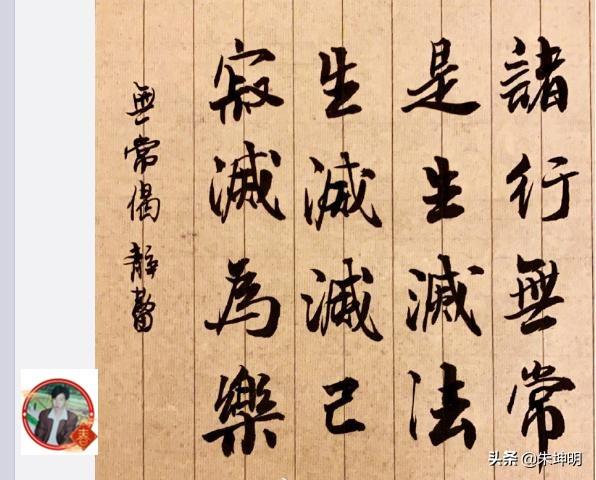 諸行無常
是生滅法
生滅滅己
寂滅為樂
無常偈 靜蕾
头条 @朱坤明